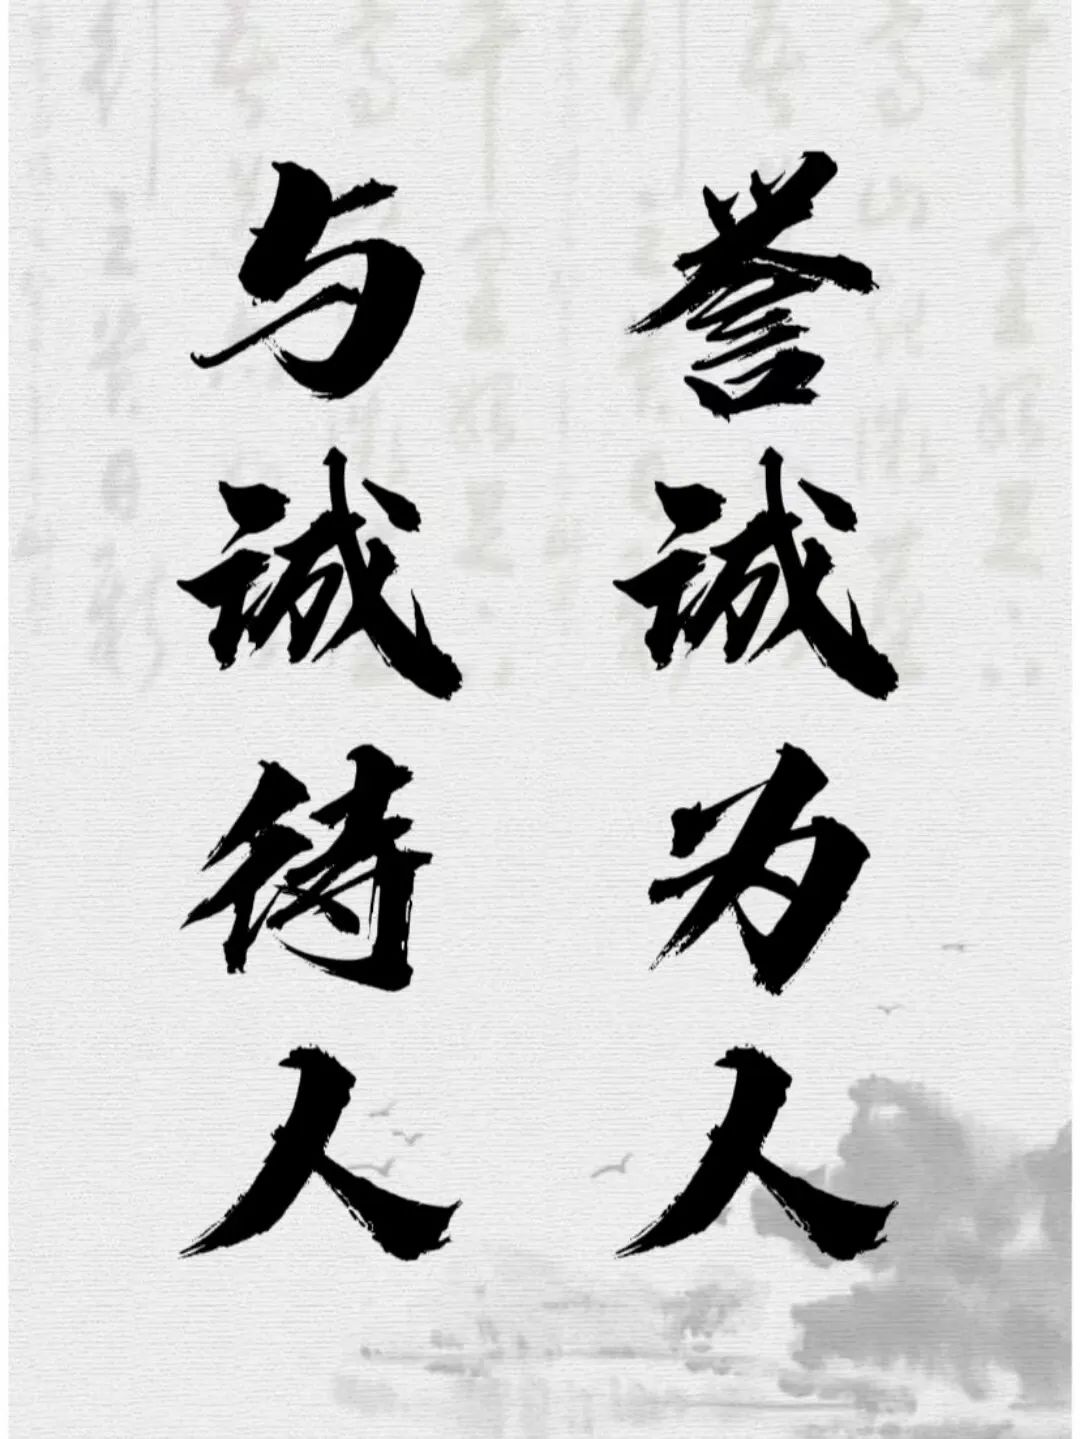 誉诚为人
与诚待人